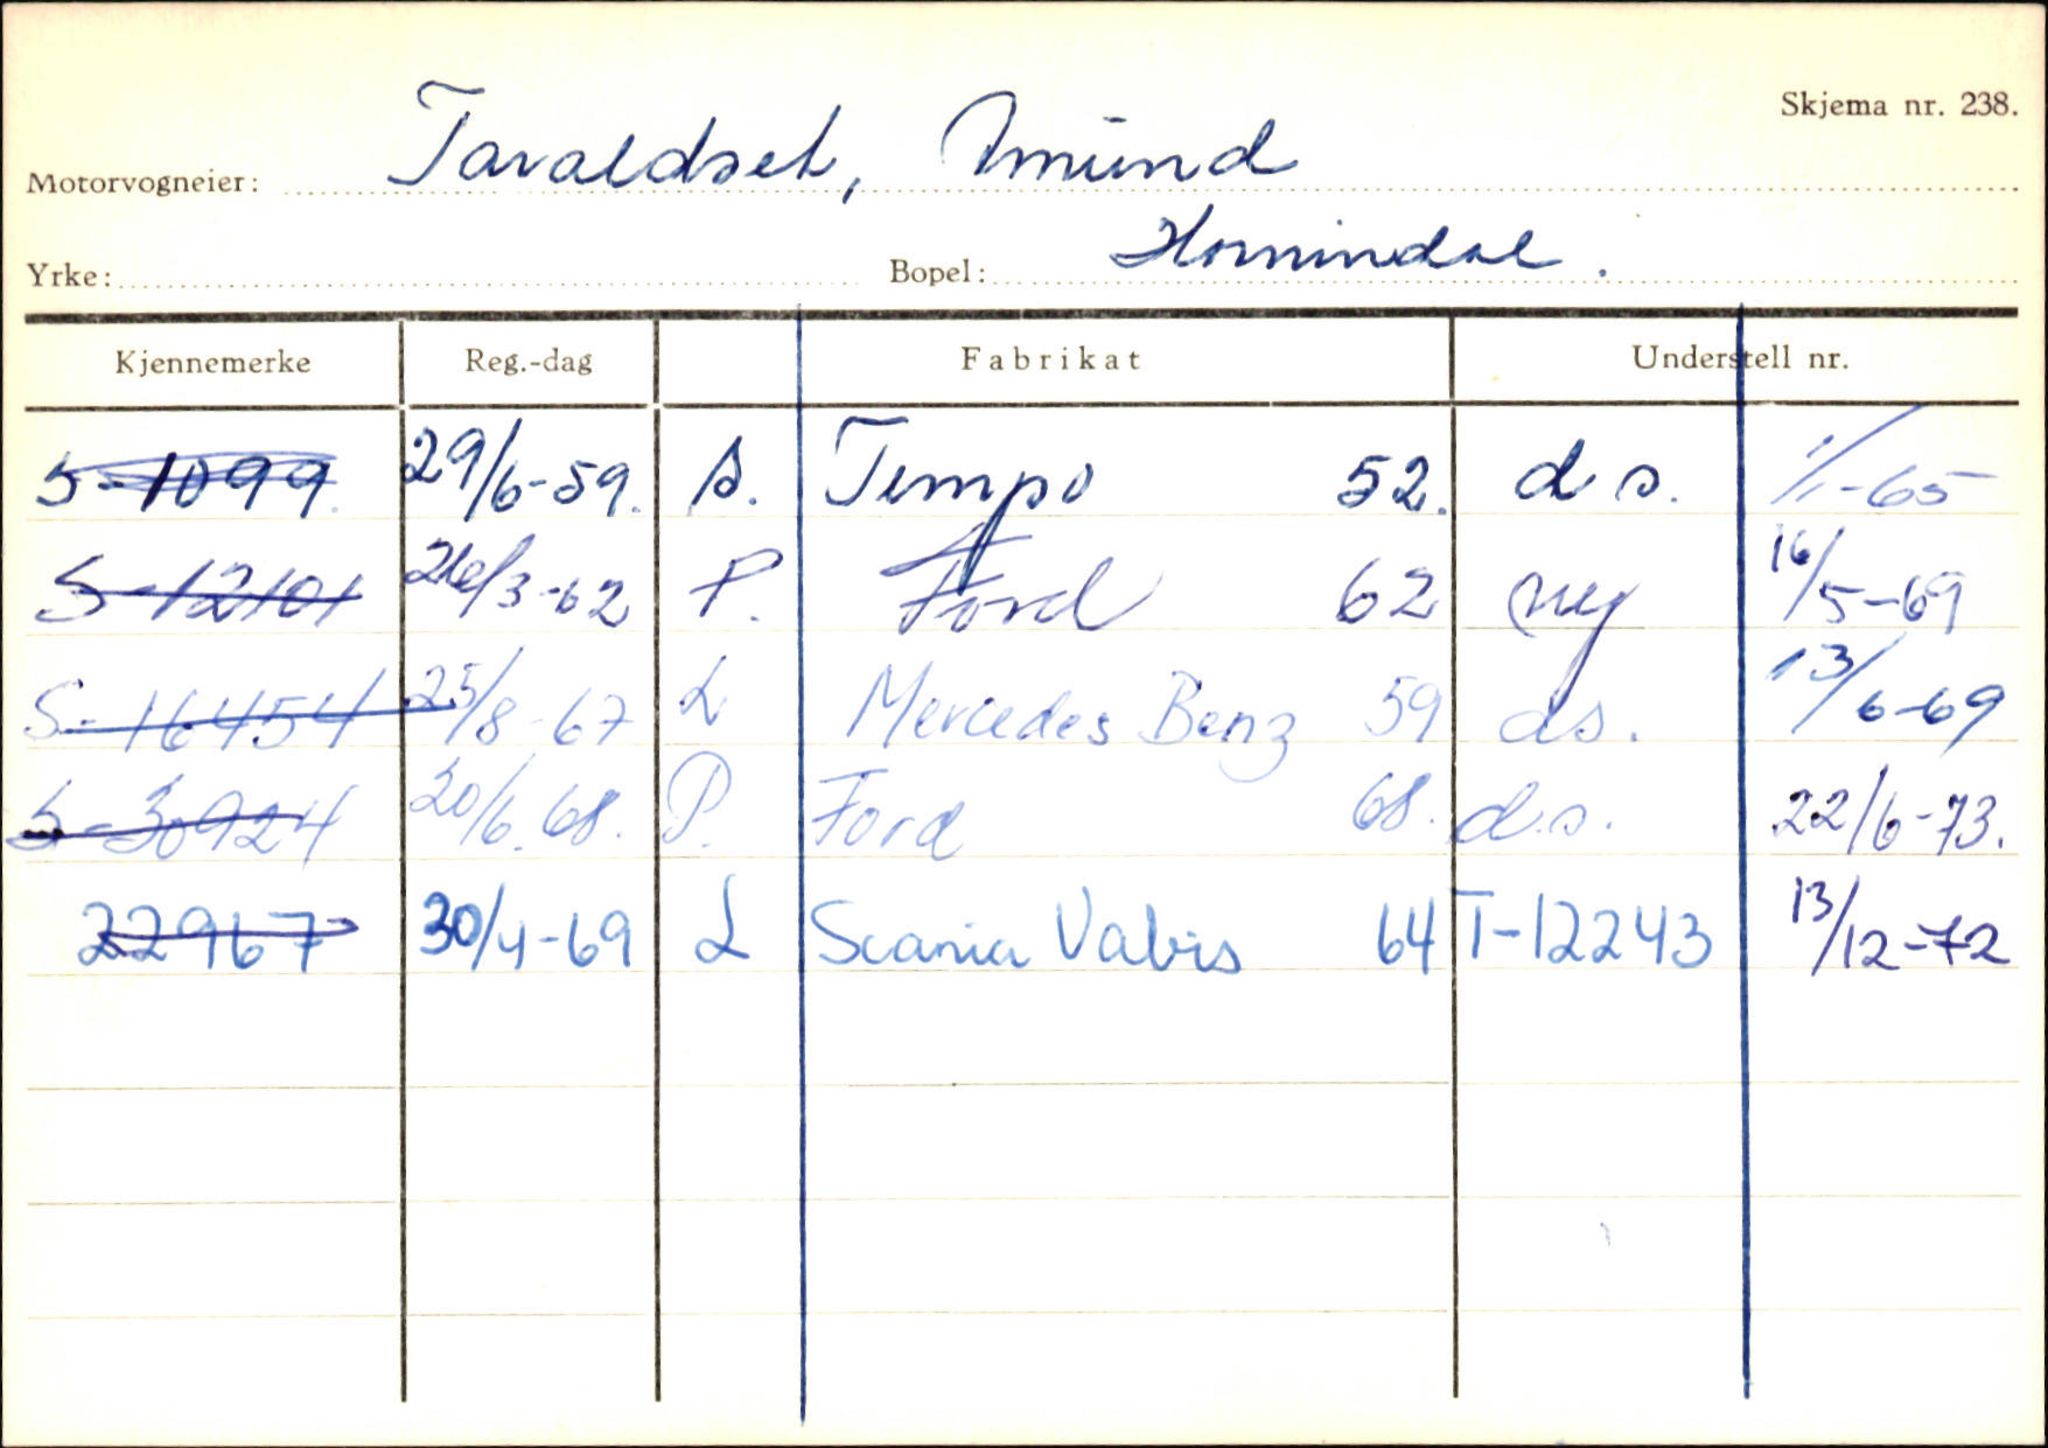 Skjema nr. 238.
Motorvogneier: Taraldset, Amund
Yrke: Bopel: Hornindal.
Kjennemerke Reg.-dag Fabrikat Understell nr.
S-1099. 29/6-59. A. Tempo 52. d s. 1/1-65
S-12101 26/3-62 P. Ford 62 ny 16/5-69
S-16454 25/8-67 L Mercedes Benz 59 ds. 13/6-69
S-30924 20/6.68. P. Ford 68. d.s. 22/6-73.
22967 30/4-69 L Scania Vabis 64 T-12243 13/12-72